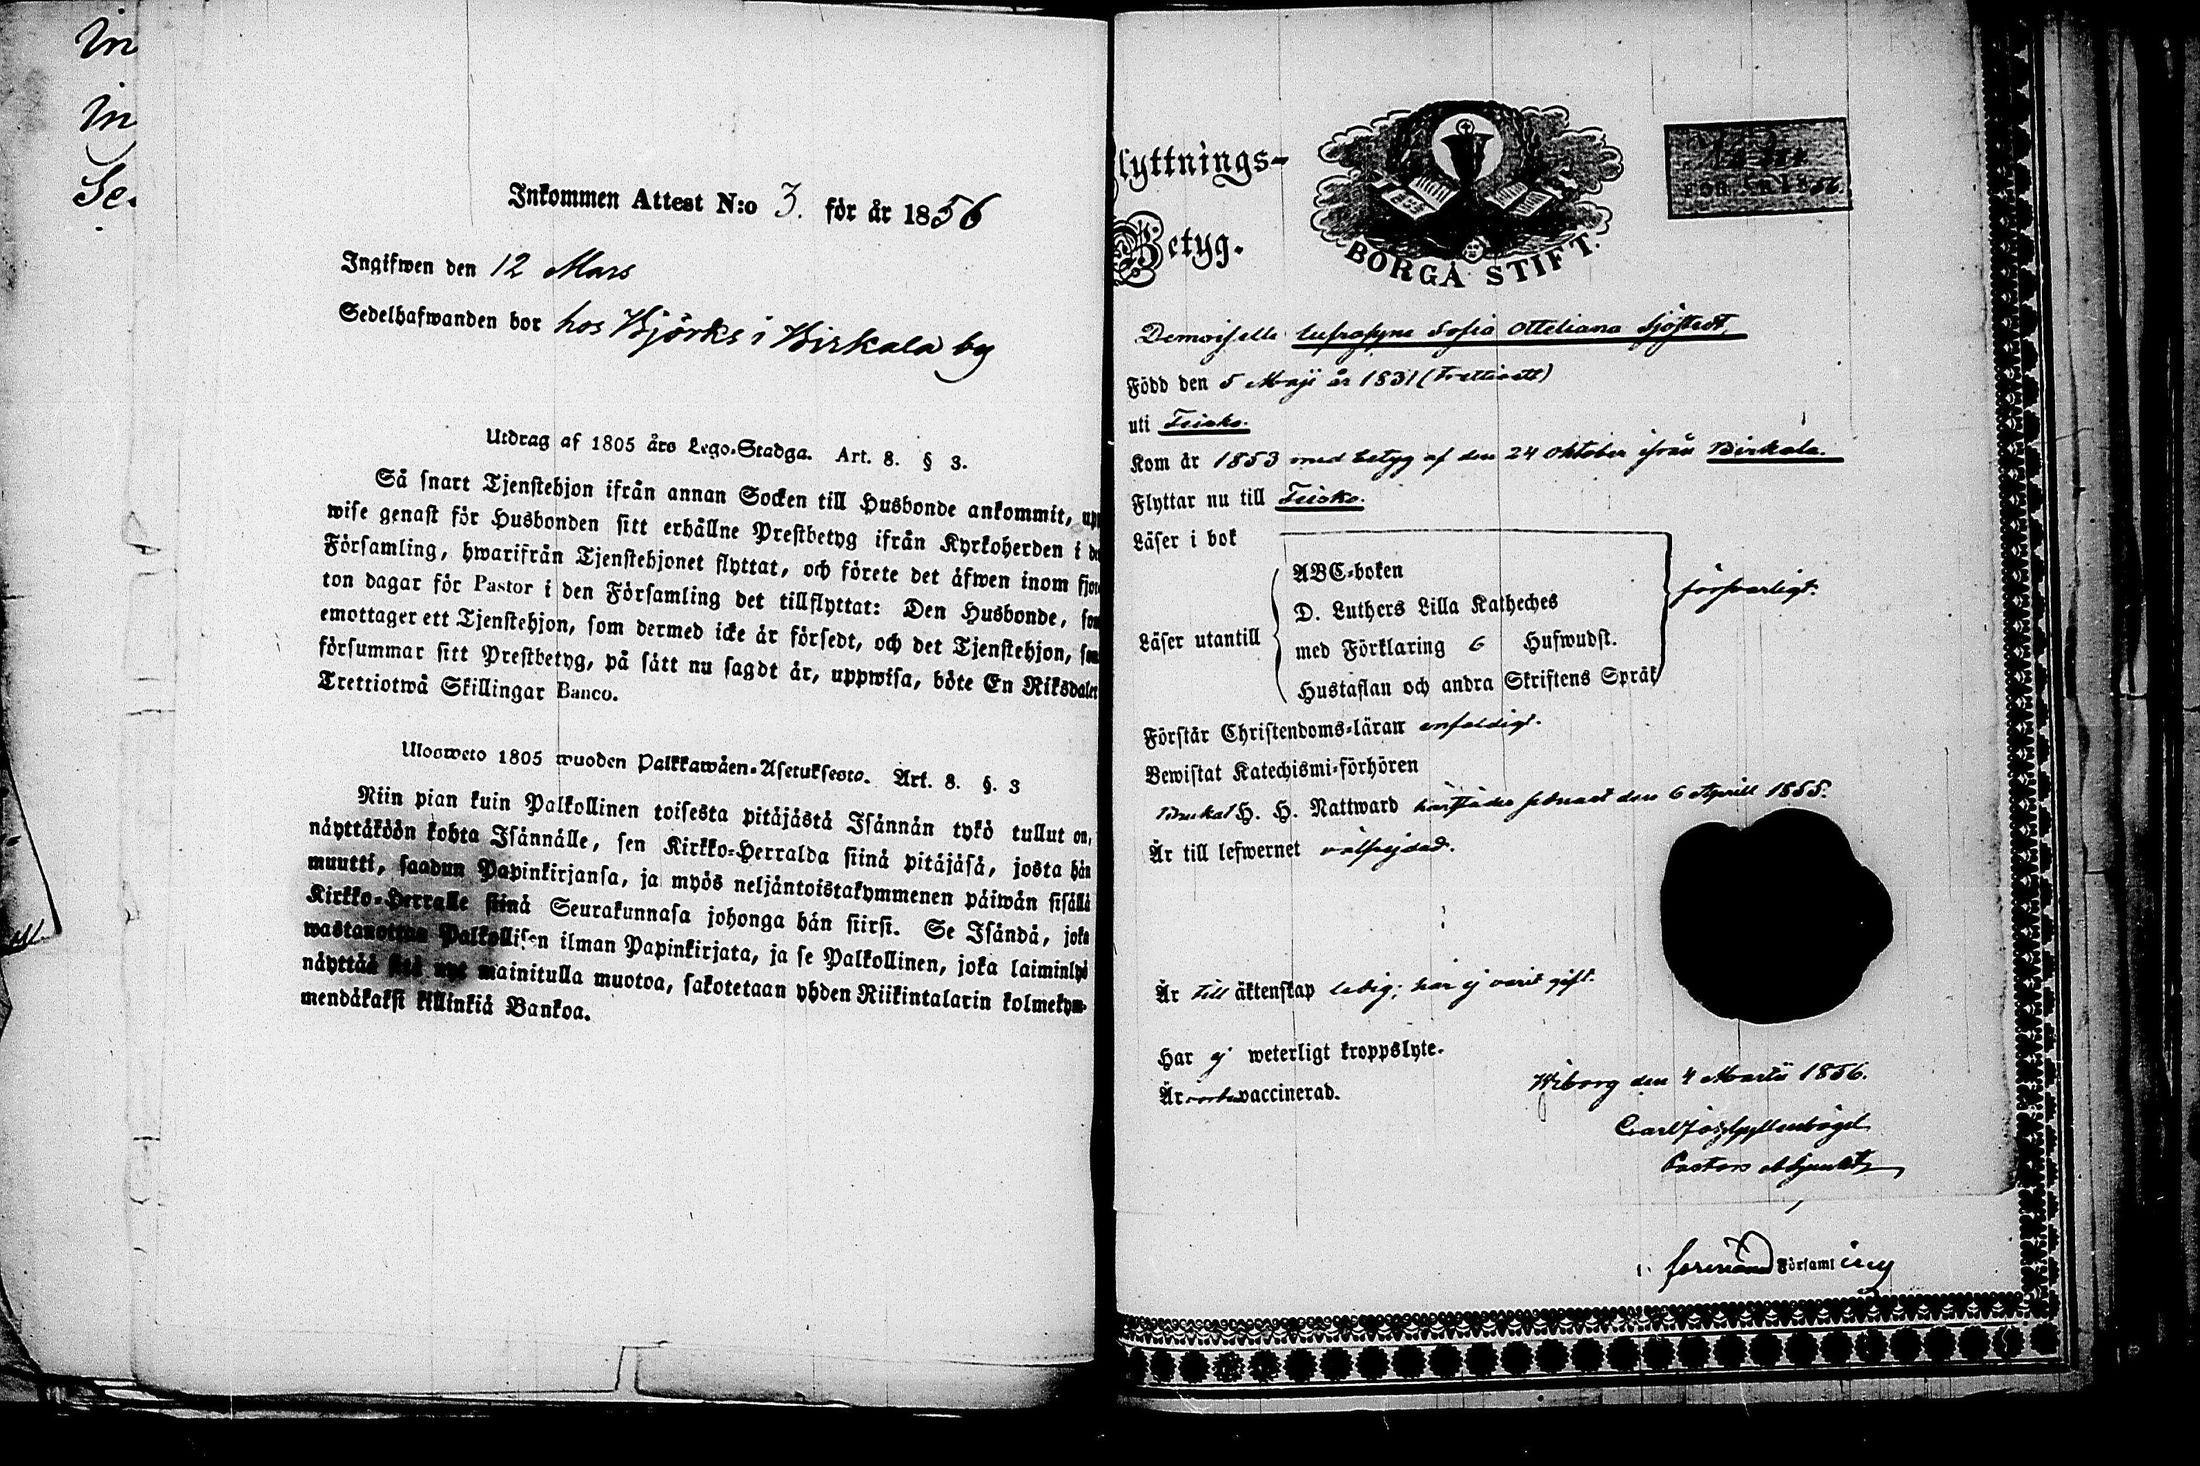 In
In
Se
Inkommen Attest N:o 3. för år 1856
Ingifwen den 12 Mars
Sedelhafwanden bor hos Björks i Birkala by
Utdrag af 1805 års Lego-Stadga. Art. 8. § 3.
Så snart Tjenstehjon ifrån annan Socken till Husbonde ankommit, upp
wise genast för Husbonden sitt erhållne Prestbetyg ifrån Kyrkoherden i de
Församling, hwarifrån Tjenstehjonet flyttat, och förete det äfwen inom fjor
ton dagar för Pastor i den Församling det tillflyttat: Den Husbonde, som
emottager ett Tjenstehjon, som dermed icke är försedt, och det Tjenstehjon, som
försummar sitt Prestbetyg, på sätt nu sagdt är, uppwisa, böte En Riksdaler
Trettiotwå Skillingar Banco.
Ulosweto 1805 wuoden Palkkawäen-Asetuksesta. Art. 8. §. 3
Niin pian kuin Palkollinen toisesta pitäjästä Isännän tykö tullut on,
näyttäköön kohta Isännälle, sen Kirkko-Herralda siinä pitäjäsä, josta hän
muutti, saadun Papinkirjansa, ja myös neljäntoistakymmenen päiwän sisällä
Kirkko-Herralle siinä Seurakunnasa johonga hän siirsi. Se Isändä, joka
wastanottaa Palkollisen ilman Papinkirjata, ja se Palkollinen, joka laiminlyö
näyttää sitä nyt mainitulla muotoa, sakotetaan yhden Riikintalarin kolmekym-
mendäkaksi killinkiä Bankoa.
lyttnings-
Betyg.
BORGÅ STIFT.
Demoiselle Eufrosyne Sofia Otteliana Sjöstedt,
Född den 5 Maji år 1831 (trettioett)
uti Teisko.
Kom år 1853 med betyg af den 24 Oktober ifrån Birkala.
Flyttar nu till Teisko.
Läser i bok
Läser utantill
ABC-boken
D. Luthers Lilla Katheches
med Förklaring 6 Hufwudst.
Hustaflan och andra Skriftens Språk
försvarligt.
Förstår Christendoms-läran enfaldigt.
Bewistat Katechismi-förhören
Brukat H. H. Nattward härstädes senast den 6 Aprill 1855.
Är till lefwernet välfrejdad.
Är till äktenskap ledig; har ej varit gift.
Har ej weterligt kroppslyte.
Är vaccinerad.
Wiborg den 4 Martii 1856.
Carl Gyllenbögel
Pastors Adjunkt
i Församling